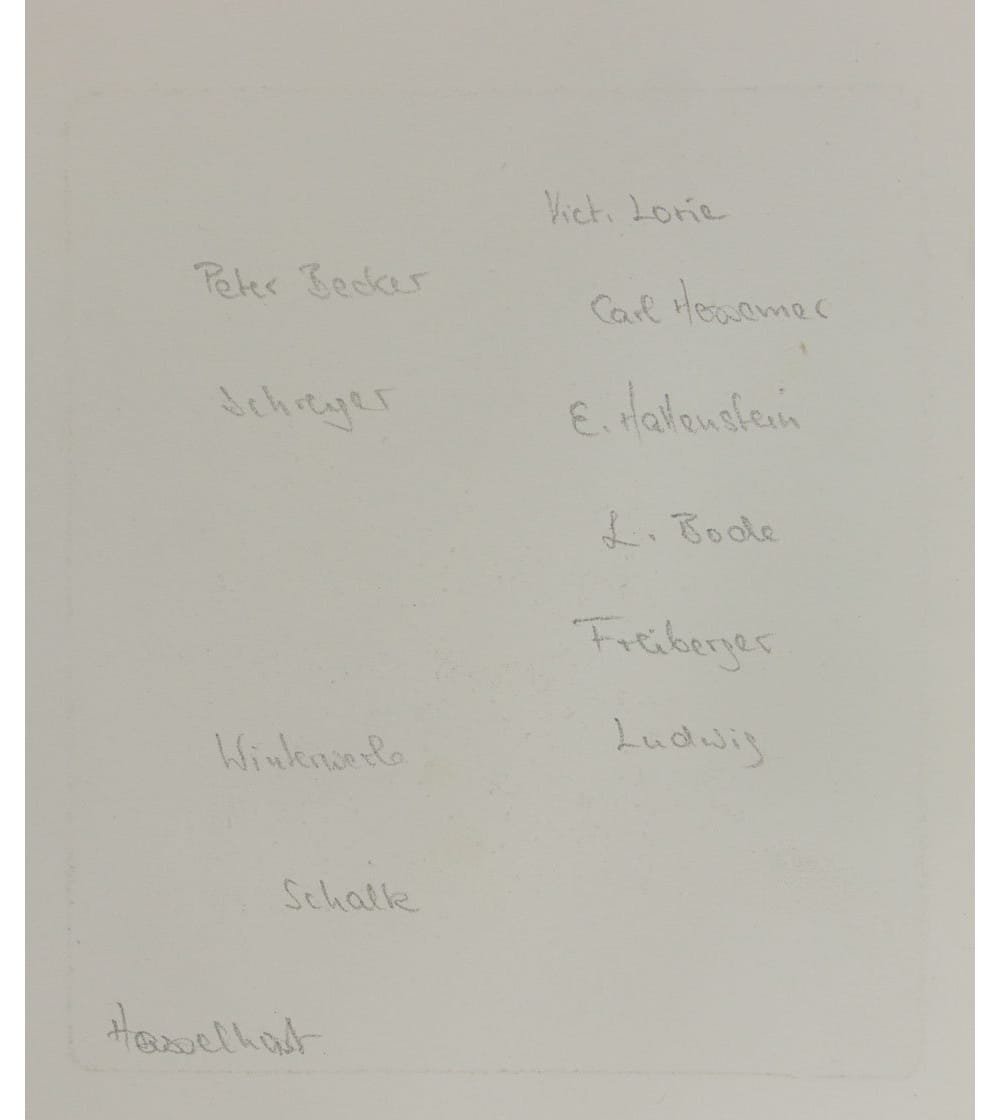 Vict. Lorie
Peter Becker
Carl Hessemer
Schreyer
E. Hallenstein
L. Bode
Freiberger
Ludwig
Winterwerb
Schalk
Hasselhast